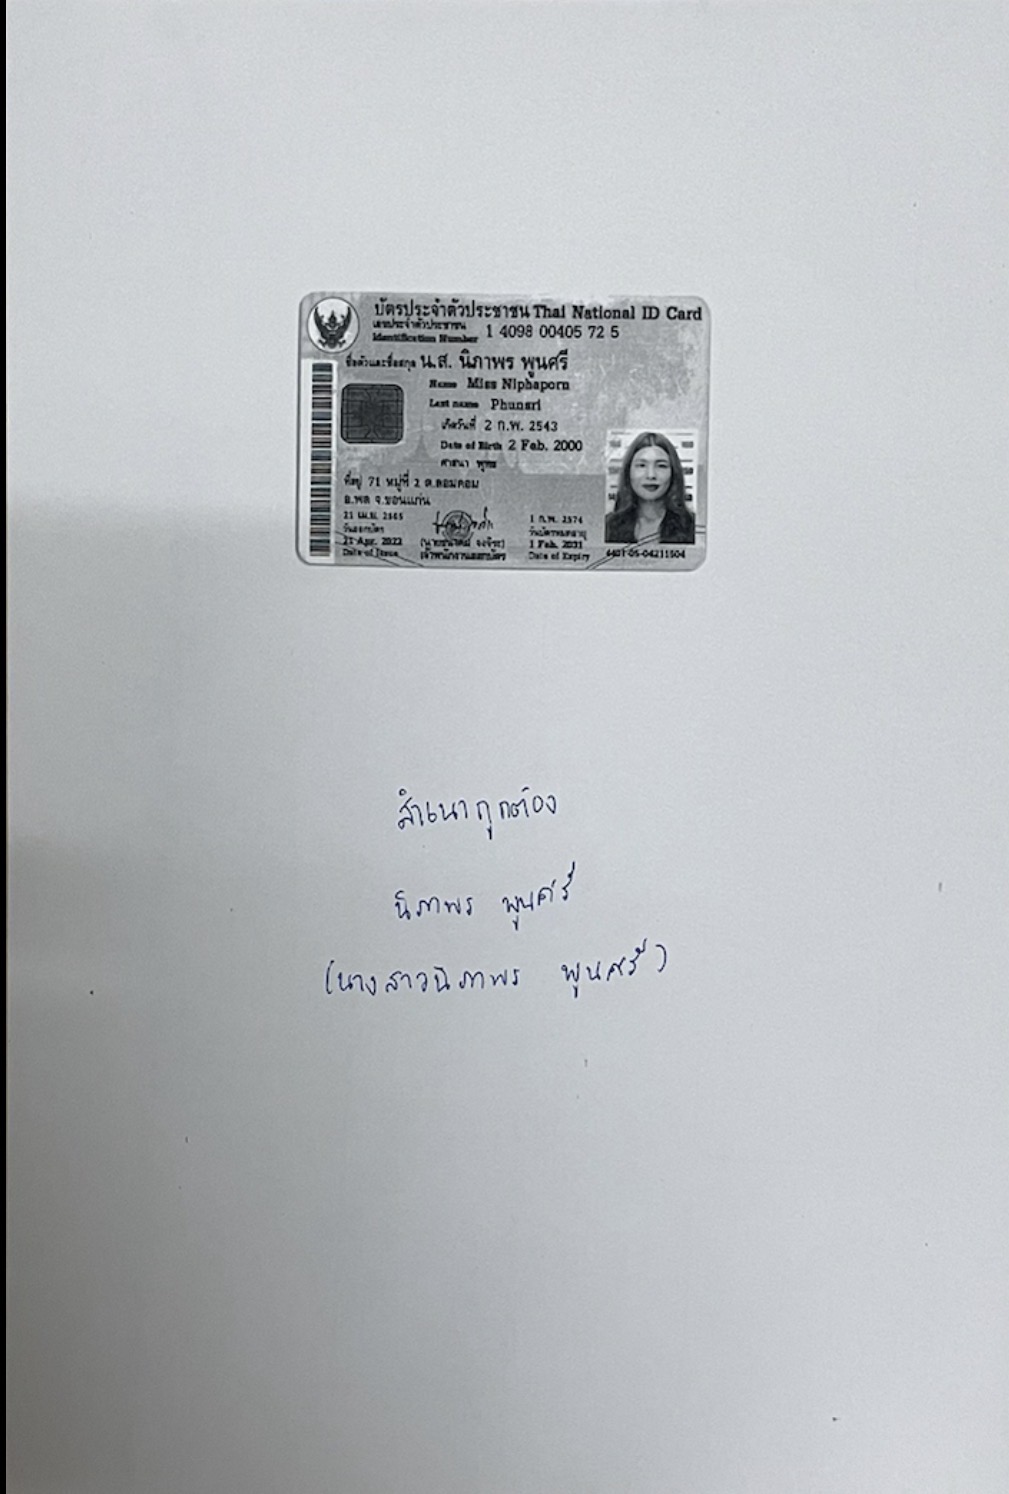 บัตรประจำตัวประชาชน Thai National ID Card
เลขประจำตัวประชาชน
Identification Number 1 4098 00405 72 5
ชื่อตัวและชื่อสกุล น.ส. นิภาพร พูนศรี
Name Miss Niphaporn
Last name Phunsri
เกิดวันที่ 2 ก.พ. 2543
Date of Birth 2 Feb. 2000
ศาสนา พุทธ
ที่อยู่ 71 หมู่ที่ 2 ต.
อ.พล จ.ขอนแก่น
21 เม.ย. 2565
วันออกบัตร
21 Apr. 2022
Date of Issue
เจ้าพนักงานออกบัตร
1 ก.พ. 2574
วันบัตรหมดอายุ
1 Feb. 2031
Date of Expiry
160
160
4401-05-04211504
สำเนาถูกต้อง
นิภาพร พูนศรี
(นางสาวนิภาพร พูนศรี)